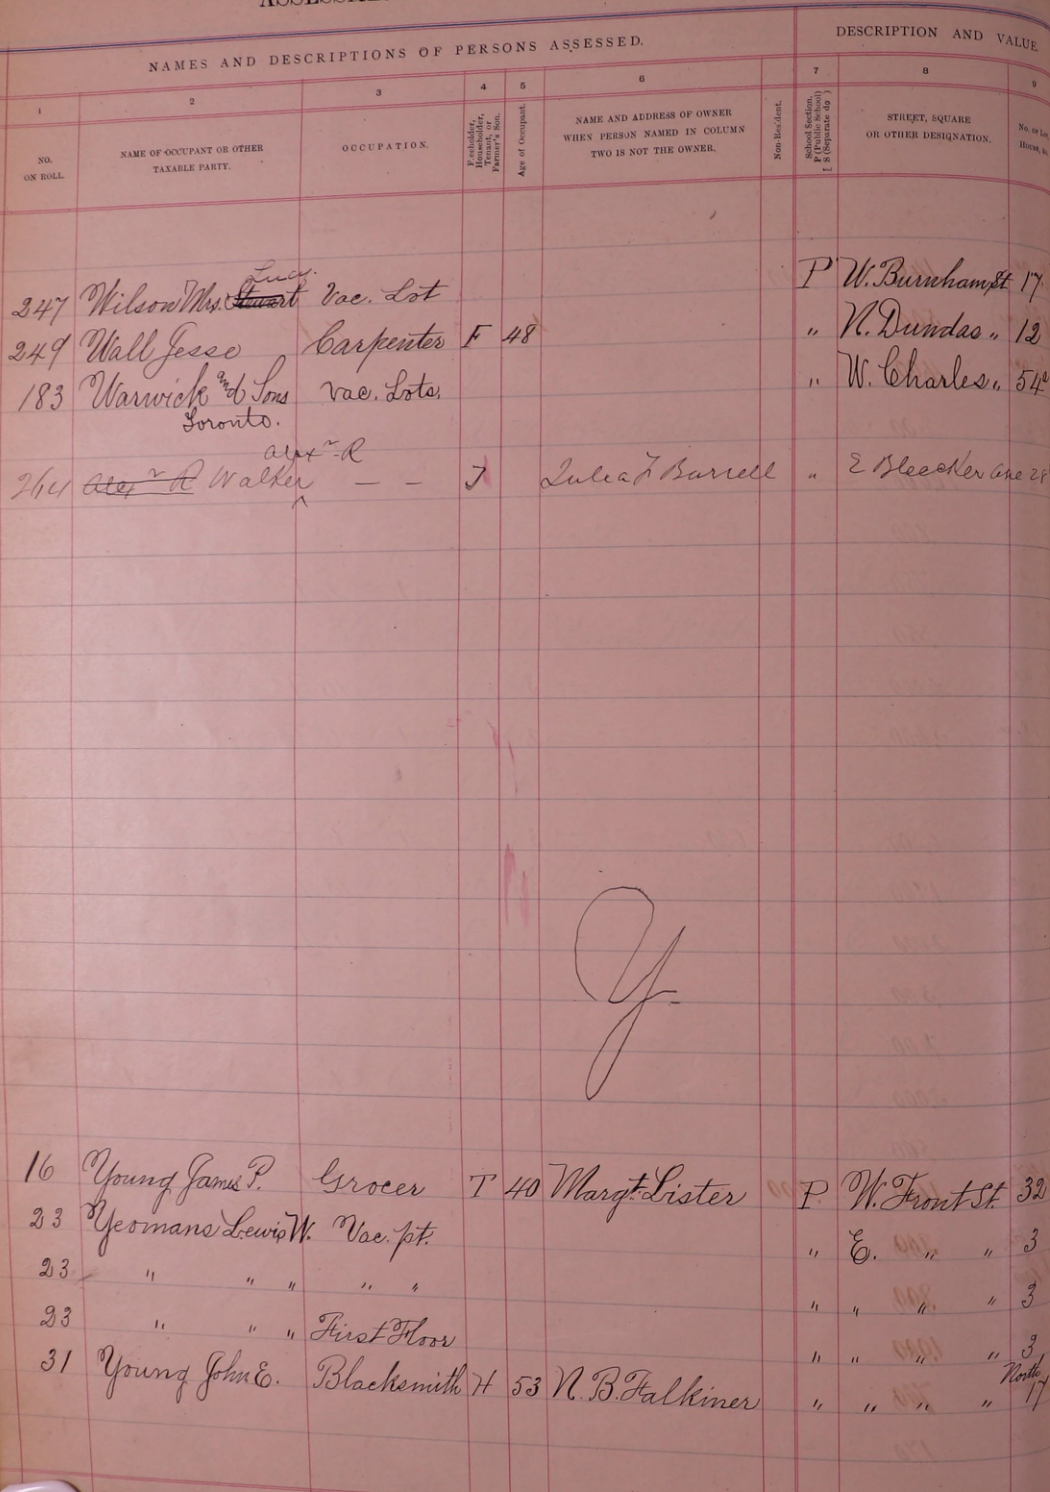 NAMES AND DESCRIPTIONS OF PERSONS ASSESSED. DESCRIPTION AND VALUE
1 2 3 4 5 6 7 8 9
NO. ON ROLL. NAME OF OCCUPANT OR OTHER TAXABLE PARTY. OCCUPATION. Freeholder, Householder, Tenant, or Farmer's Son. Age of Occupant. NAME AND ADDRESS OF OWNER WHEN PERSON NAMED IN COLUMN TWO IS NOT THE OWNER. Non-Resident. School Section, P (Public School) S (Separate do) STREET, SQUARE OR OTHER DESIGNATION. No. of Lot House, &c.
Lucy.
247 Wilson Mrs. Stewart Vac. Lot P W. Burnham St 17
249 Wall Jesse Carpenter F 48 " N. Dundas " 12
183 Warwick and Sons Vac. Lots. " W. Charles " 54
Toronto.
Alexr R
264 Alexr R Walker — — T Julia F Burrell " E Bleecker Ave 28
Y
16 Young James P. Grocer T 40 Margt. Lister P W. Front St. 32
23 Yeomans Lewis W. Vac. pt. " E. " " 3
23 " " " " " " " " " 3
23 " " " First Floor " " " " 3
31 Young John E. Blacksmith H 53 N. B. Falkiner " " " " North 17